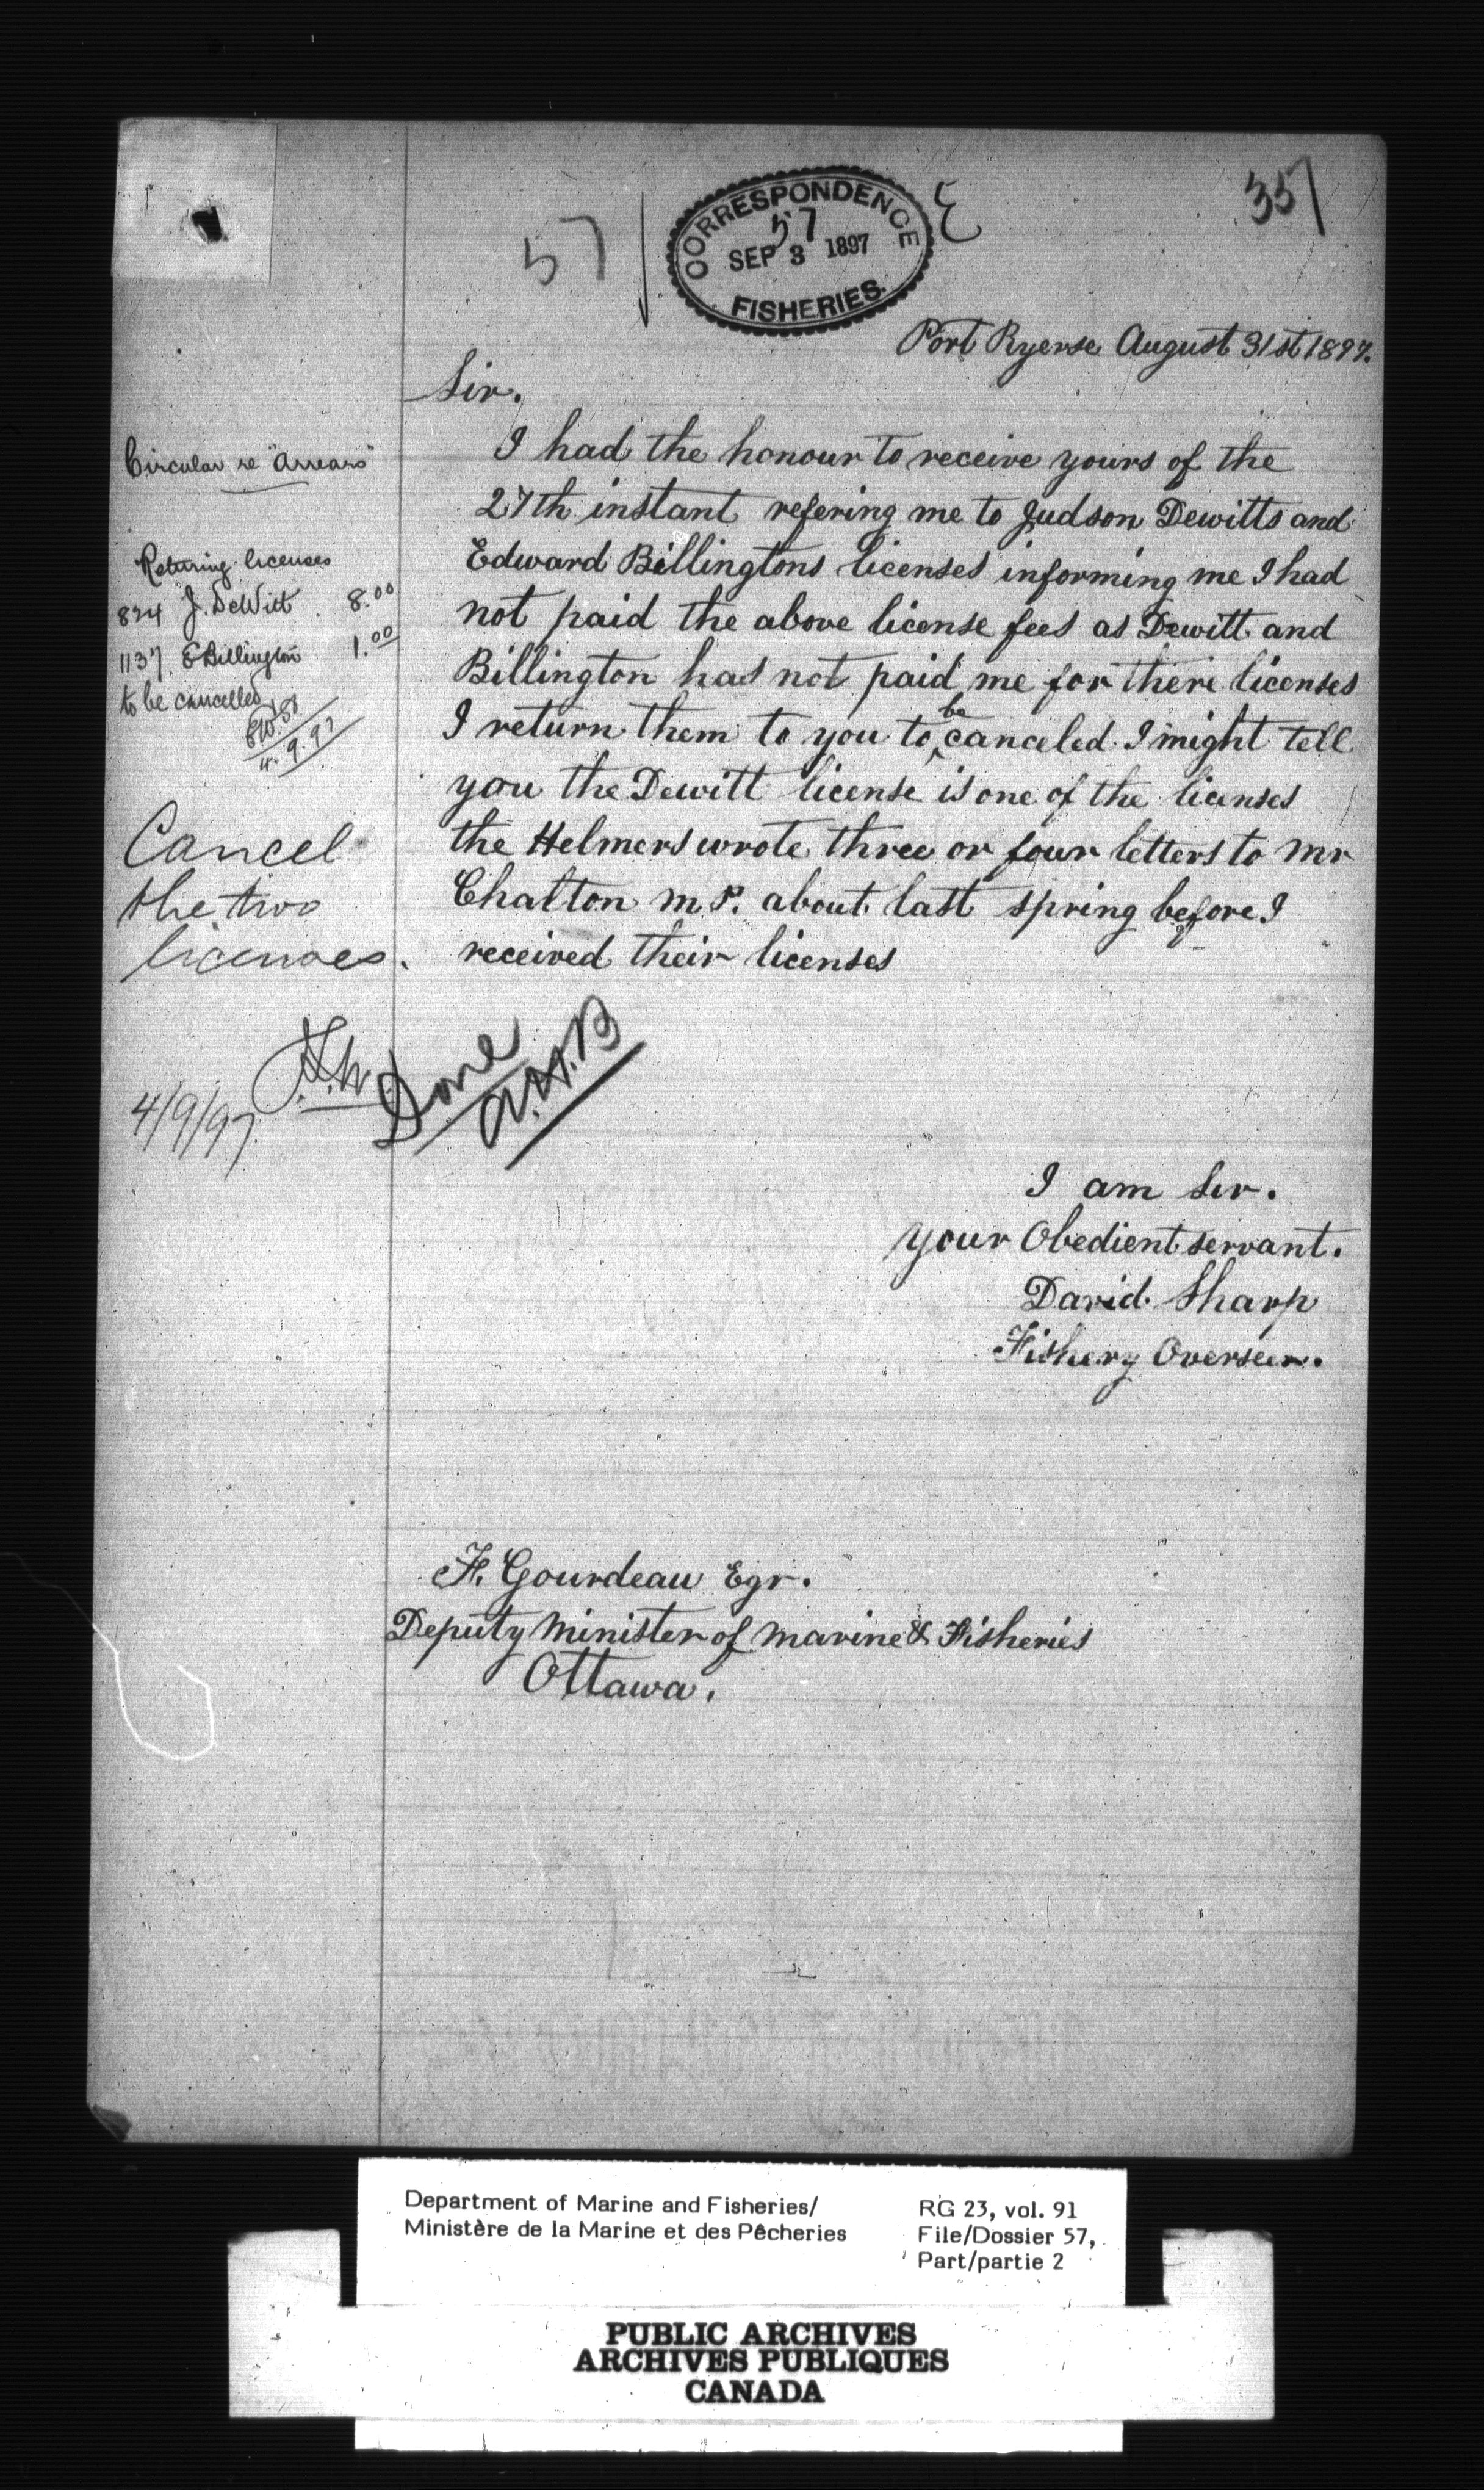 57
CORRESPONDENCE
57
SEP 3 1897
FISHERIES.
357
Port Ryerse August 31st 1897.
Sir.
I had the honour to receive yours of the
27th instant refering me to Judson Dewitts and
Edward Billingtons licenses informing me I had
not paid the above license fees as Dewitt and
Billington has not paid me for there licenses
I return them to you to be canceled. I might tell
you the Dewitt license is one of the licenses
the Helmers wrote three or four letters to Mr
Chalton M.P. about last spring before I
received their licenses
Circular re "Arrears"
Returing licenses
824 J. DeWitt . 8.00
1137 E Billington 1.00
to be cancelled
4.9.97
Cancel
the two
licenses.
4/9/97
Done
A.H.B
I am Sir.
your Obedient servant.
David Sharp
Fishery Overseer.
F. Gourdeau Eqr.
Deputy Minister of Marine & Fisheries
Ottawa.
Department of Marine and Fisheries/
Ministère de la Marine et des Pêcheries
RG 23, vol. 91
File/Dossier 57,
Part/partie 2
PUBLIC ARCHIVES
ARCHIVES PUBLIQUES
CANADA